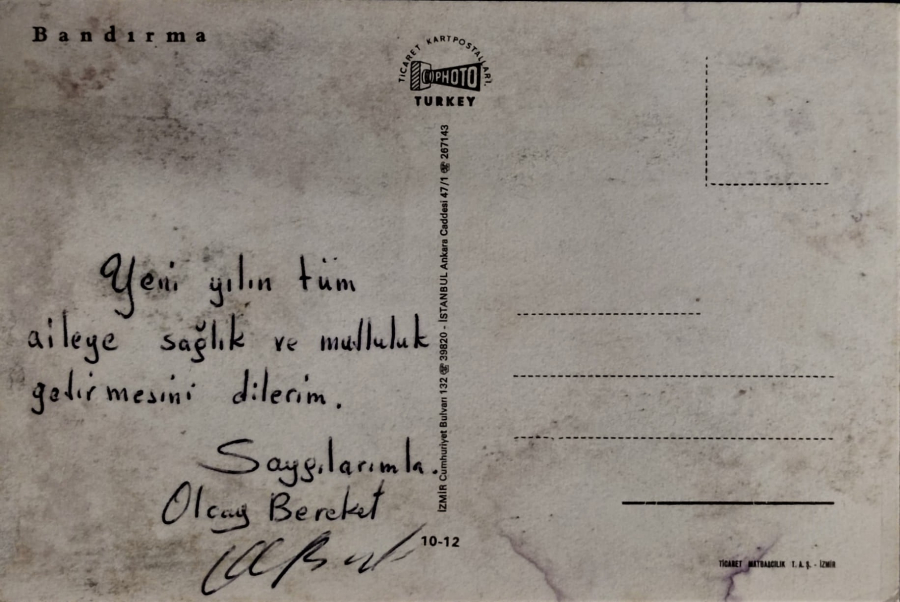 Bandırma
TİCARET KARTPOSTALLARI
PHOTO
TURKEY
Yeni yılın tüm
aileye sağlık ve mutluluk
getirmesini dilerim.
Saygılarımla.
Olcay Bereket
İZMİR Cumhuriyet Bulvarı 132 ☏ 39820 - İSTANBUL Ankara Caddesi 47/1 ☏ 267143
10-12
TİCARET MATBAACILIK T. A. Ş. - İZMİR